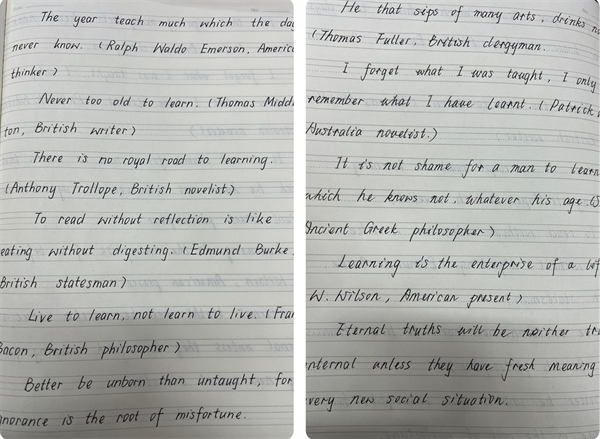 The year teach much which the day
never know. (Ralph Waldo Emerson, America
thinker)
Never too old to learn. (Thomas Middl
ton, British writer)
There is no royal road to learning.
(Anthony Trollope, British novelist)
To read without reflection is like
eating without digesting. (Edmund Burke
British statesman)
Live to learn, not learn to live. (Fran
Bacon, British philosopher)
Better be unborn than untaught, for
ignorance is the root of misfortune.
He that sips of many arts, drinks no
(Thomas Fuller, British clergyman.
I forget what I was taught, I only
remember what I have learnt. (Patrick
Australia novelist.)
It is not shame for a man to learn
which he knows not, whatever his age (S
Ancient Greek philosopher)
Learning is the enterprise of a lif
W. Wilson, American present)
Eternal truths will be neither tr
nternal unless they have fresh meaning
every new social situation.